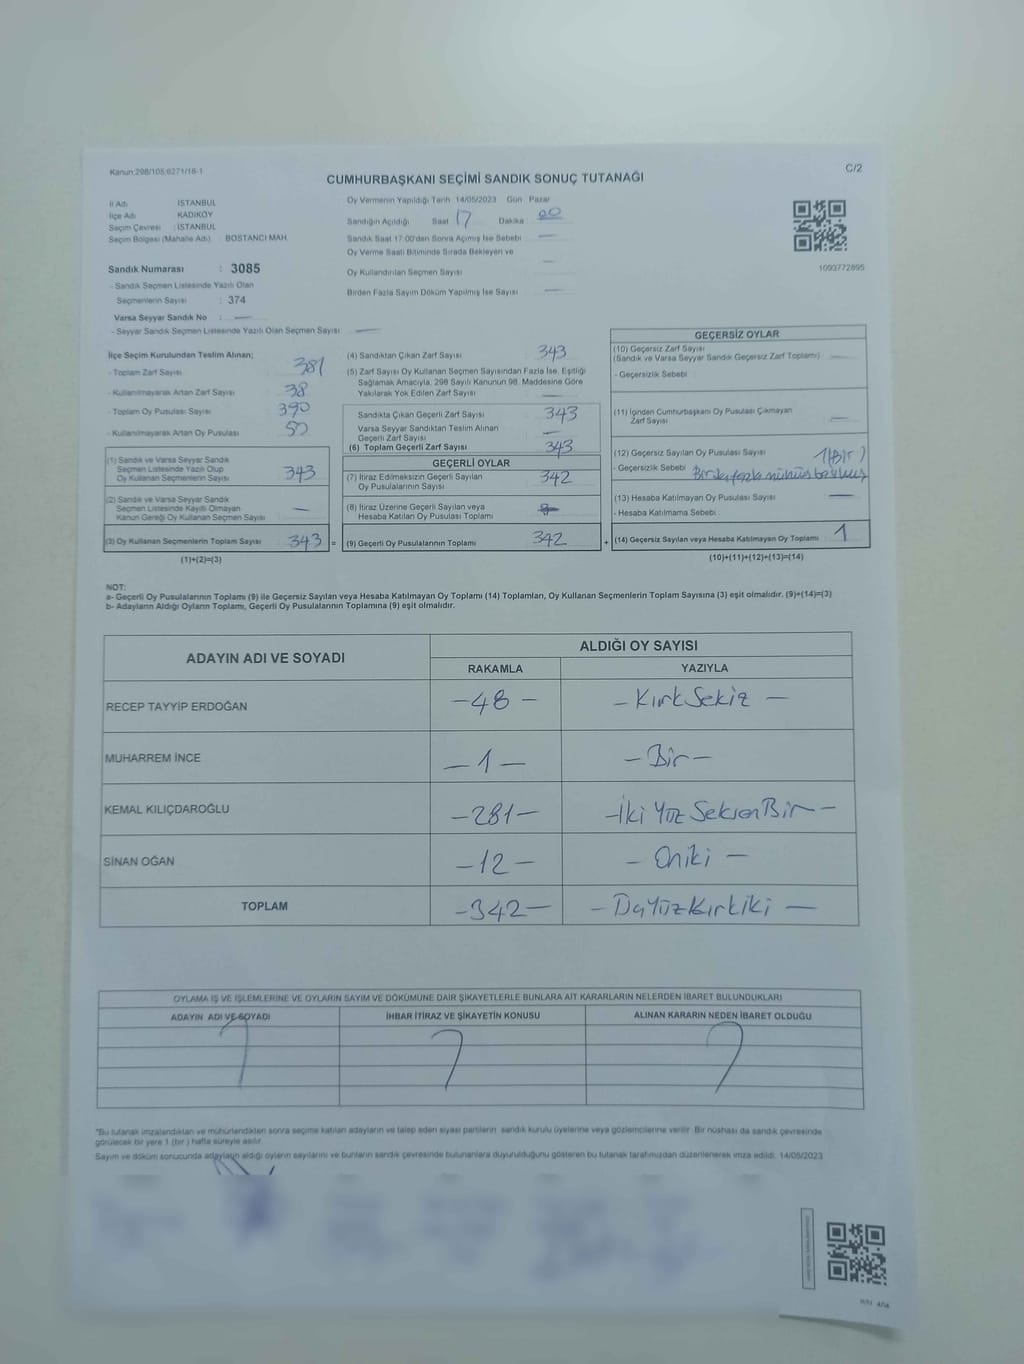 Kanun:298/105;6271/18-1
C/2
CUMHURBAŞKANI SEÇİMİ SANDIK SONUÇ TUTANAĞI
İl Adı : İSTANBUL
İlçe Adı : KADIKÖY
Seçim Çevresi : İSTANBUL
Seçim Bölgesi (Mahalle Adı) : BOSTANCI MAH.
Oy Vermenin Yapıldığı Tarih 14/05/2023 Gün Pazar
Sandığın Açıldığı Saat 17 Dakika 00
Sandık Saat 17:00'den Sonra Açılmış İse Sebebi —
Oy Verme Saati Bitiminde Sırada Bekleyen ve
Oy Kullandırılan Seçmen Sayısı —
Birden Fazla Sayım Döküm Yapılmış İse Sayısı —
1093772895
Sandık Numarası : 3085
- Sandık Seçmen Listesinde Yazılı Olan
Seçmenlerin Sayısı : 374
Varsa Seyyar Sandık No : —
- Seyyar Sandık Seçmen Listesinde Yazılı Olan Seçmen Sayısı : —
İlçe Seçim Kurulundan Teslim Alınan;
- Toplam Zarf Sayısı 381
- Kullanılmayarak Artan Zarf Sayısı 38
- Toplam Oy Pusulası Sayısı 390
- Kullanılmayarak Artan Oy Pusulası 50
(1) Sandık ve Varsa Seyyar Sandık
Seçmen Listesinde Yazılı Olup
Oy Kullanan Seçmenlerin Sayısı 343
(2) Sandık ve Varsa Seyyar Sandık
Seçmen Listesinde Kayıtlı Olmayan
Kanun Gereği Oy Kullanan Seçmen Sayısı —
(3) Oy Kullanan Seçmenlerin Toplam Sayısı 343 =
(1)+(2)=(3)
(4) Sandıktan Çıkan Zarf Sayısı 343
(5) Zarf Sayısı Oy Kullanan Seçmen Sayısından Fazla İse, Eşitliği
Sağlamak Amacıyla, 298 Sayılı Kanunun 98. Maddesine Göre
Yakılarak Yok Edilen Zarf Sayısı —
Sandıkta Çıkan Geçerli Zarf Sayısı 343
Varsa Seyyar Sandıktan Teslim Alınan
Geçerli Zarf Sayısı —
(6) Toplam Geçerli Zarf Sayısı 343
GEÇERLİ OYLAR
(7) İtiraz Edilmeksizin Geçerli Sayılan
Oy Pusulalarının Sayısı 342
(8) İtiraz Üzerine Geçerli Sayılan veya
Hesaba Katılan Oy Pusulası Toplamı
(9) Geçerli Oy Pusulalarının Toplamı 342 +
GEÇERSİZ OYLAR
(10) Geçersiz Zarf Sayısı
(Sandık ve Varsa Seyyar Sandık Geçersiz Zarf Toplamı) —
- Geçersizlik Sebebi :
(11) İçinden Cumhurbaşkanı Oy Pusulası Çıkmayan
Zarf Sayısı —
(12) Geçersiz Sayılan Oy Pusulası Sayısı 1(Bir)
- Geçersizlik Sebebi Birden fazla mühür
(13) Hesaba Katılmayan Oy Pusulası Sayısı —
- Hesaba Katılmama Sebebi :
(14) Geçersiz Sayılan veya Hesaba Katılmayan Oy Toplamı : 1
(10)+(11)+(12)+(13)=(14)
NOT:
a- Geçerli Oy Pusulalarının Toplamı (9) ile Geçersiz Sayılan veya Hesaba Katılmayan Oy Toplamı (14) Toplamları, Oy Kullanan Seçmenlerin Toplam Sayısına (3) eşit olmalıdır. (9)+(14)=(3)
b- Adayların Aldığı Oyların Toplamı, Geçerli Oy Pusulalarının Toplamına (9) eşit olmalıdır.
ADAYIN ADI VE SOYADI
ALDIĞI OY SAYISI
RAKAMLA YAZIYLA
RECEP TAYYİP ERDOĞAN -48- -Kırk Sekiz-
MUHARREM İNCE -1- -Bir-
KEMAL KILIÇDAROĞLU -281- -İki Yüz Seksen Bir-
SİNAN OĞAN -12- -Oniki-
TOPLAM -342- Kırkiki-
OYLAMA İŞ VE İŞLEMLERİNE VE OYLARIN SAYIM VE DÖKÜMÜNE DAİR ŞİKAYETLERLE BUNLARA AİT KARARLARIN NELERDEN İBARET BULUNDUKLARI
ADAYIN ADI VE SOYADI İHBAR İTİRAZ VE ŞİKAYETİN KONUSU ALINAN KARARIN NEDEN İBARET OLDUĞU
*Bu tutanak imzalandıktan ve mühürlendikten sonra seçime katılan adayların ve talep eden siyasi partilerin sandık kurulu üyelerine veya gözlemcilerine verilir. Bir nüshası da sandık çevresinde
görülecek bir yere 1 (bir ) hafta süreyle asılır.
Sayım ve döküm sonucunda adayların aldığı oyların sayılarını ve bunların sandık çevresinde bulunanlara duyurulduğunu gösteren bu tutanak tarafımızdan düzenlenerek imza edildi. 14/05/2023